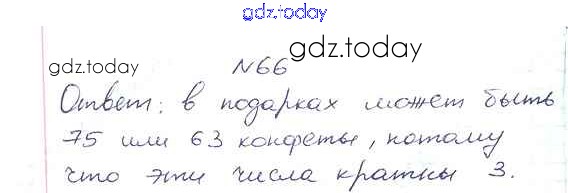 gdz.today
gdz.today
gdz.today
№66
Ответ: в подарках может быть
75 или 63 конфеты, потому
что эти числа кратны 3.